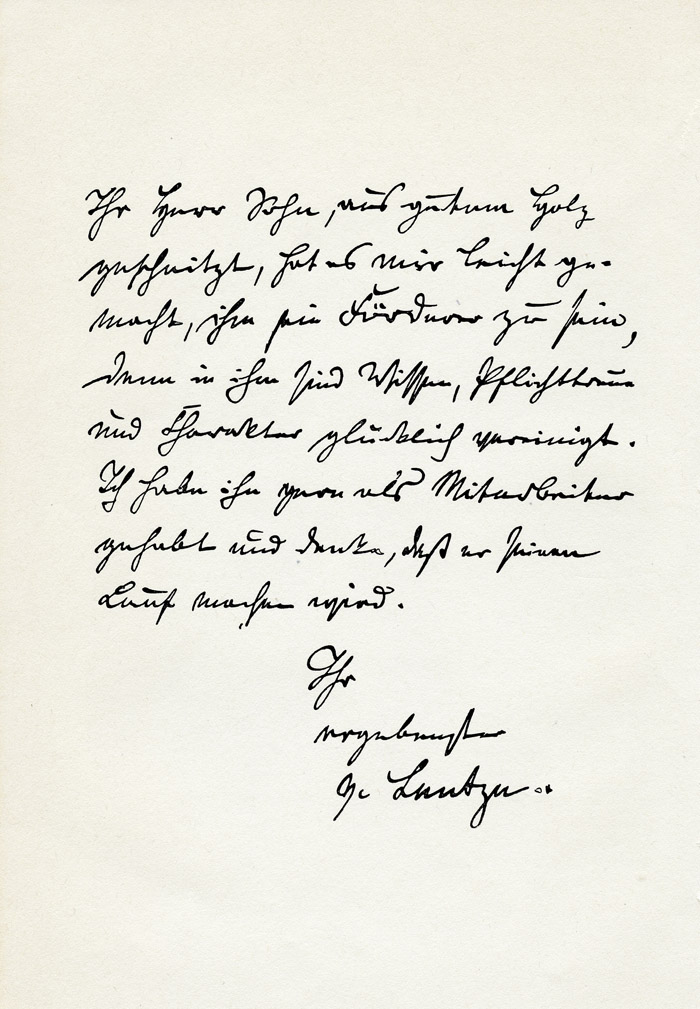 Ihr Herr Sohn, aus gutem Holz
geschnitzt, hat es mir leicht ge-
macht, ihm ein Förderer zu sein,
denn in ihm sind Wissen, Pflichttreue
und Charakter glücklich vereinigt.
Ich habe ihn gern als Mitarbeiter
gehabt und denke, daß er seinen
Lauf machen wird.
Ihr
ergebenster